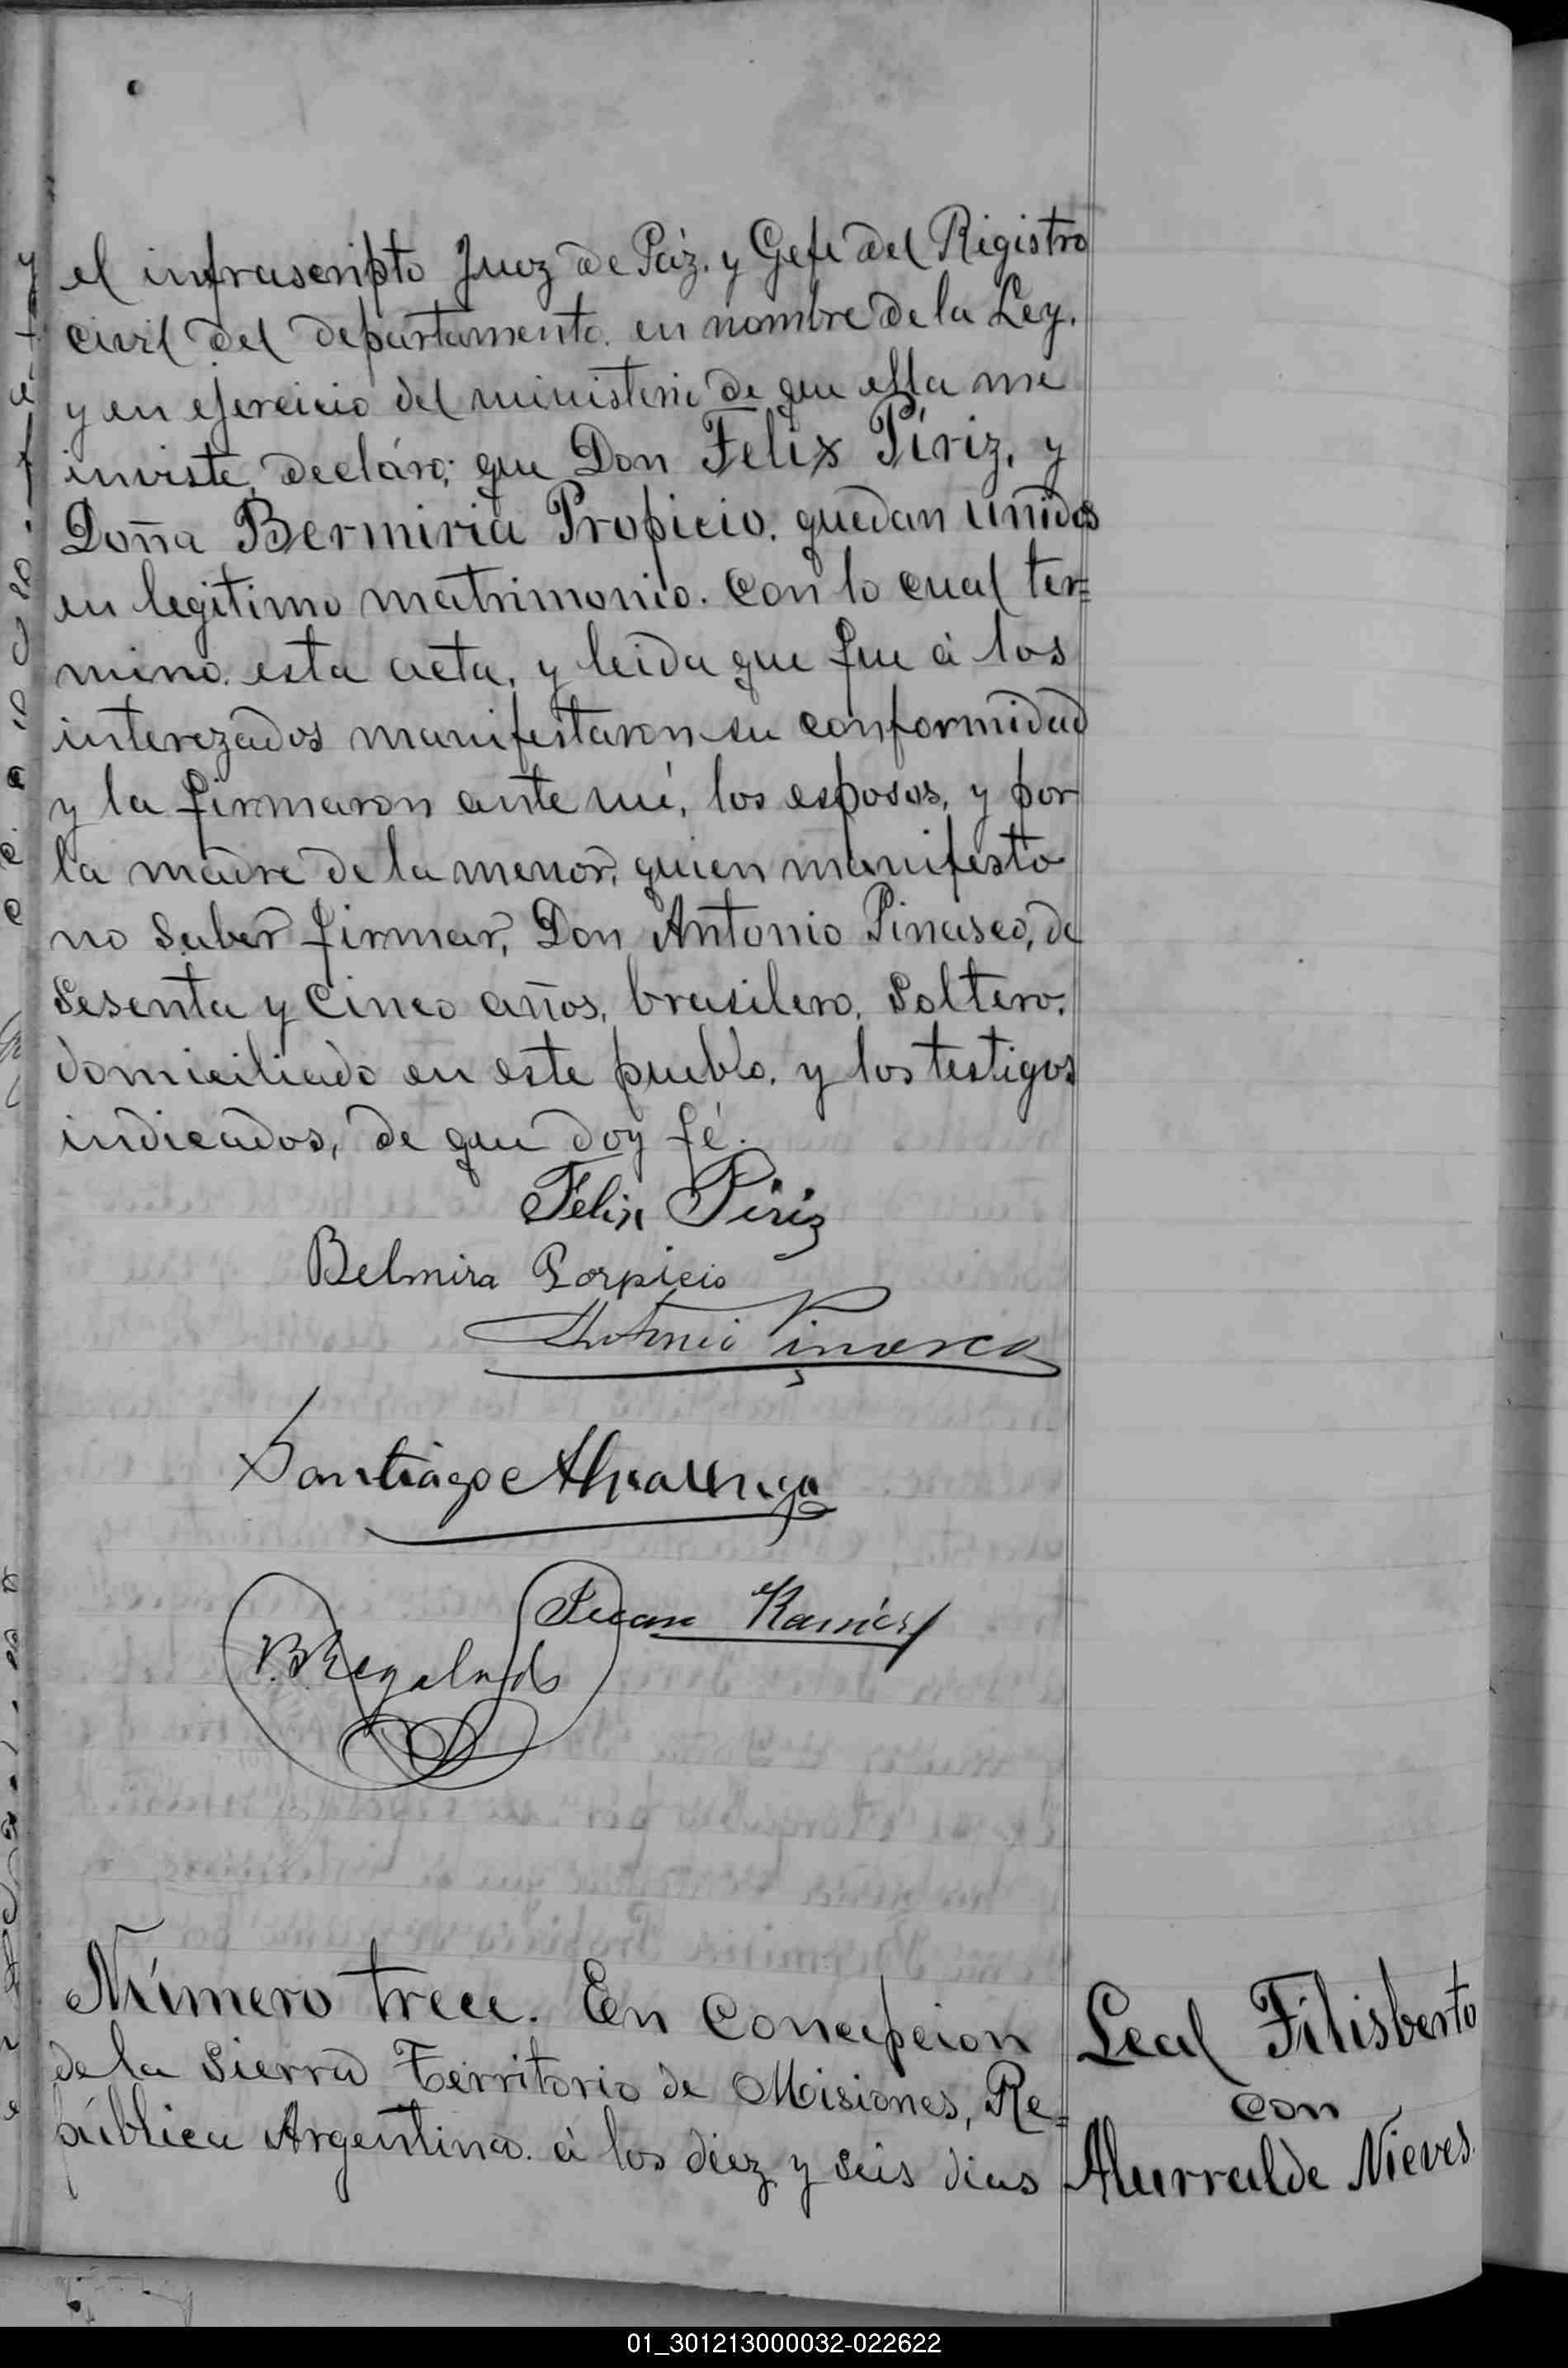 el infrascripto Juez de Páz. y Gefe del Rigistro
civil del departamento. en nombre de la Ley.
y en ejercicio del ministerio de que ella me
inviste, decláro; que Don Felix Píriz, y
Doña Bermiria Propicio. quedan unidos
en legitimo matrimonio. Con lo cual ter=
mino. esta acta, y leida que fue á los
interezados manifestaron su conformidad
y la firmaron ante mí, los esposos, y por
la madre de la menor, quien manifesto
no saber firmar, Don Antonio Pinasco, de
sesenta y cinco años, brasilero, soltero.
domiciliado en este pueblo. y los testigos
indicados, de que doy fé.
Felix Piriz
Belmira Porpicio
Antonio Pinasco
Santiago Alvarenga
Juan Ramirez
B. Regalado
Número trece. En Concepcion
de la Sierra Territorio de Misiones, Re=
pública Argentina. á los diez y seis dias
Leal Filisberto
con
Alurralde Nieves.
01_301213000032-022622